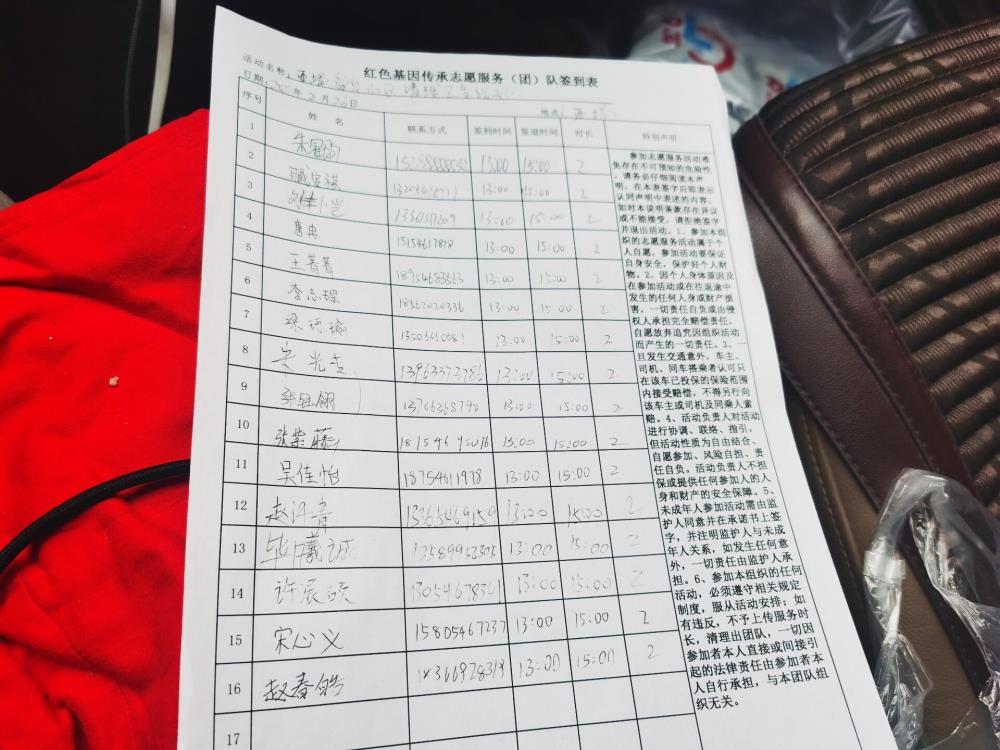 红色基因传承志愿服务（团）队签到表
活动名称：
日期： 年2月26日 地点：
序号 姓名 联系方式 签到时间 签退时间 时长 特别声明
1 13:00 15:00 2
2 13:00 15:00 2
3 15:00 2
4 唐冉 15154617818 13:00 15:00 2
5 王菁菁 18954683663 13:00 15:00 2
6 李志琛 18362020336 13:00 15:00 2
7 13:00 15:00 2
8 13963373786 13:00 15:00 2
9 13706368790 13:00 15:00 2
10 张紫藤 13:00 15:00 2
11 吴佳怡 18754611978 13:00 15:00 2
12 13365469159 13:00 15:00 2
13 13589952305 13:00 15:00 2
14 许宸硕 13054678361 13:00 15:00 2
15 宋心义 15805467237 13:00 15:00 2
16 赵春皓 18366928319 13:00 15:00 2
17
参加志愿服务活动难
免存在不可预知的危险性，
请务必仔细阅读本声
明，在本表签字后即表示
认同声明中表述的内容。
如对本说明条款存在异议
或不能接受，请拒绝签字
并退出活动。1、参加本组
织的志愿服务活动属于个
人自愿，参加活动要保证
自身安全，保护好个人财
物。2、因个人身体原因及
在参加活动或在往返途中
发生的任何人身或财产损
害，一切责任自负或由侵
权人承担完全赔偿责任，
自愿放弃追究因组织活动
而产生的一切责任。3、一
旦发生交通意外，车主、
司机、同车搭乘者认可只
在该车已投保的保险范围
内接受赔偿，不得另行向
该车主或司机及同乘人索
赔。4、活动负责人对活动
进行协调、联络、指引，
但活动性质为自由结合、
自愿参加、风险自担、责
任自负。活动负责人不担
保或提供任何参加人的人
身和财产的安全保障。5、
未成年人参加活动需由监
护人同意并在承诺书上签
字，并注明监护人与未成
年人关系，如发生任何意
外，一切责任由监护人承
担。6、参加本组织的任何
活动，必须遵守相关规定
制度，服从活动安排；如
有违反，不予上传服务时
长，清理出团队，一切因
参加者本人直接或间接引
起的法律责任由参加者本
人自行承担，与本团队组
织无关。